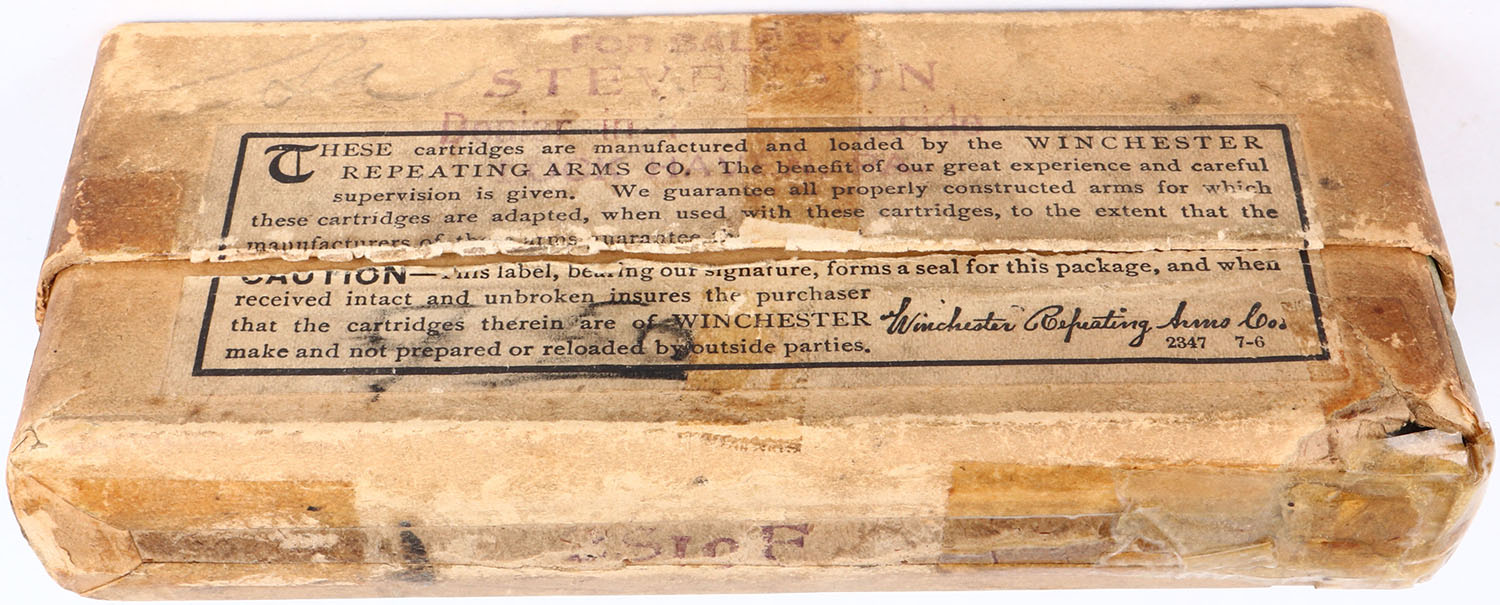 FOR SALE BY
STEVENSON
Dealer in
THESE cartridges are manufactured and loaded by the WINCHESTER
REPEATING ARMS CO. The benefit of our great experience and careful
supervision is given. We guarantee all properly constructed arms for which
these cartridges are adapted, when used with these cartridges, to the extent that the
manufacturers of the arms guarantee
CAUTION—This label, bearing our signature, forms a seal for this package, and when
received intact and unbroken insures the purchaser
that the cartridges therein are of WINCHESTER
make and not prepared or reloaded by outside parties.
Winchester Repeating Arms Co.
2347 7-6